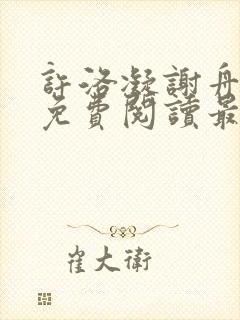 許洛凝謝舟
免費閱讀最
崔大衛